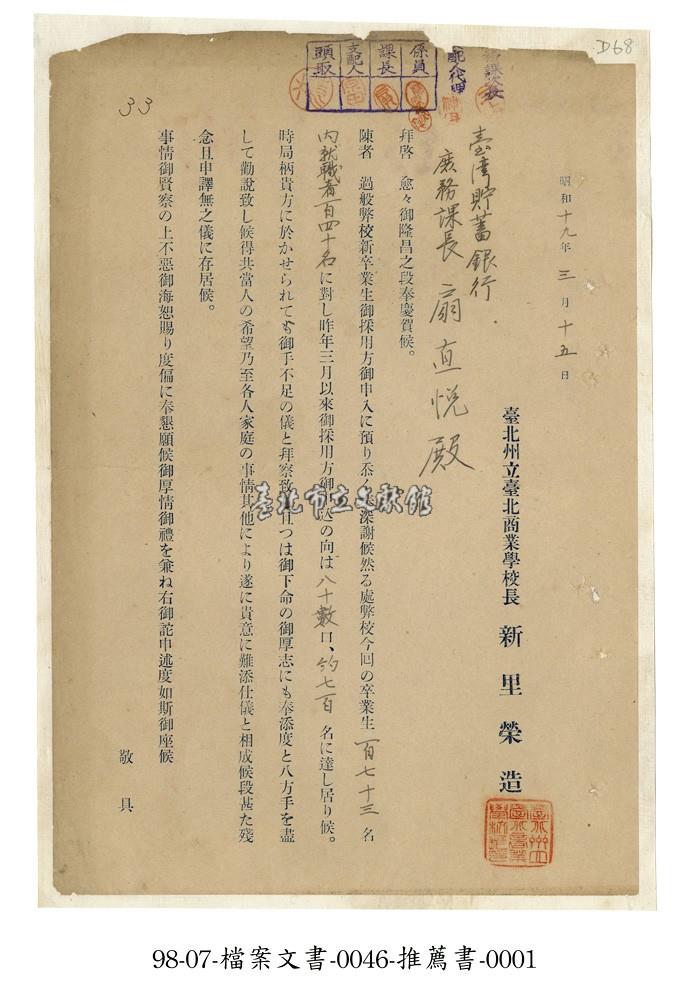 D68
係員
課長
支配人
頭取
33
昭和十九年三月十五日
臺北州立臺北商業學校長 新里榮造
臺湾貯蓄銀行
庶務課長 扇直悦殿
拜啓 愈々御隆昌之段奉慶賀候。
陳者 過般弊校新卒業生御採用方御申入に預り忝く奉深謝候然る處弊校今回の卒業生百七十三名
內就職者百四十名に對し昨年三月以來御採用方御申込の向は八十數口、約七百名に達し居り候。
時局柄貴方に於かせられても御手不足の儀と拜察致し且つは御下命の御厚志にも奉添度と八方手を盡
して勸說致し候得共當人の希望乃至各人家庭の事情其他により遂に貴意に難添仕儀と相成候段甚た殘
念且申譯無之儀に存居候。
事情御賢察の上不惡御海恕賜り度偏に奉懇願候御厚情御禮を兼ね右御詫申述度如斯御座候
敬具
臺北市立文獻館
98-07-檔案文書-0046-推薦書-0001